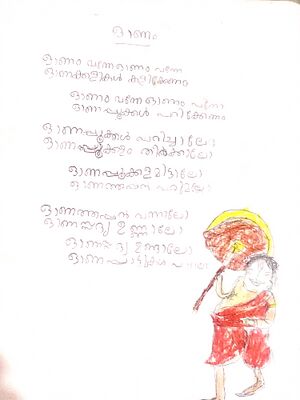 ഓണം
ഓണം വന്നേ ഓണം വന്നേ
ഓണക്കളികൾ കളിക്കേണം
ഓണം വന്നേ ഓണം വന്നേ
ഓണപ്പൂക്കൾ പറിക്കേണം
ഓണപ്പൂക്കൾ പറിച്ചാലോ
ഓണപ്പൂക്കളം തീർക്കാലോ
ഓണപ്പൂക്കളമിട്ടാലോ
ഓണത്തപ്പൻ
ഓണത്തപ്പൻ വന്നാലോ
ഓണസദ്യ ഉണ്ണാലോ
ഓണസദ്യ ഉണ്ടാലോ
ഓണപ്പാട്ടുകൾ